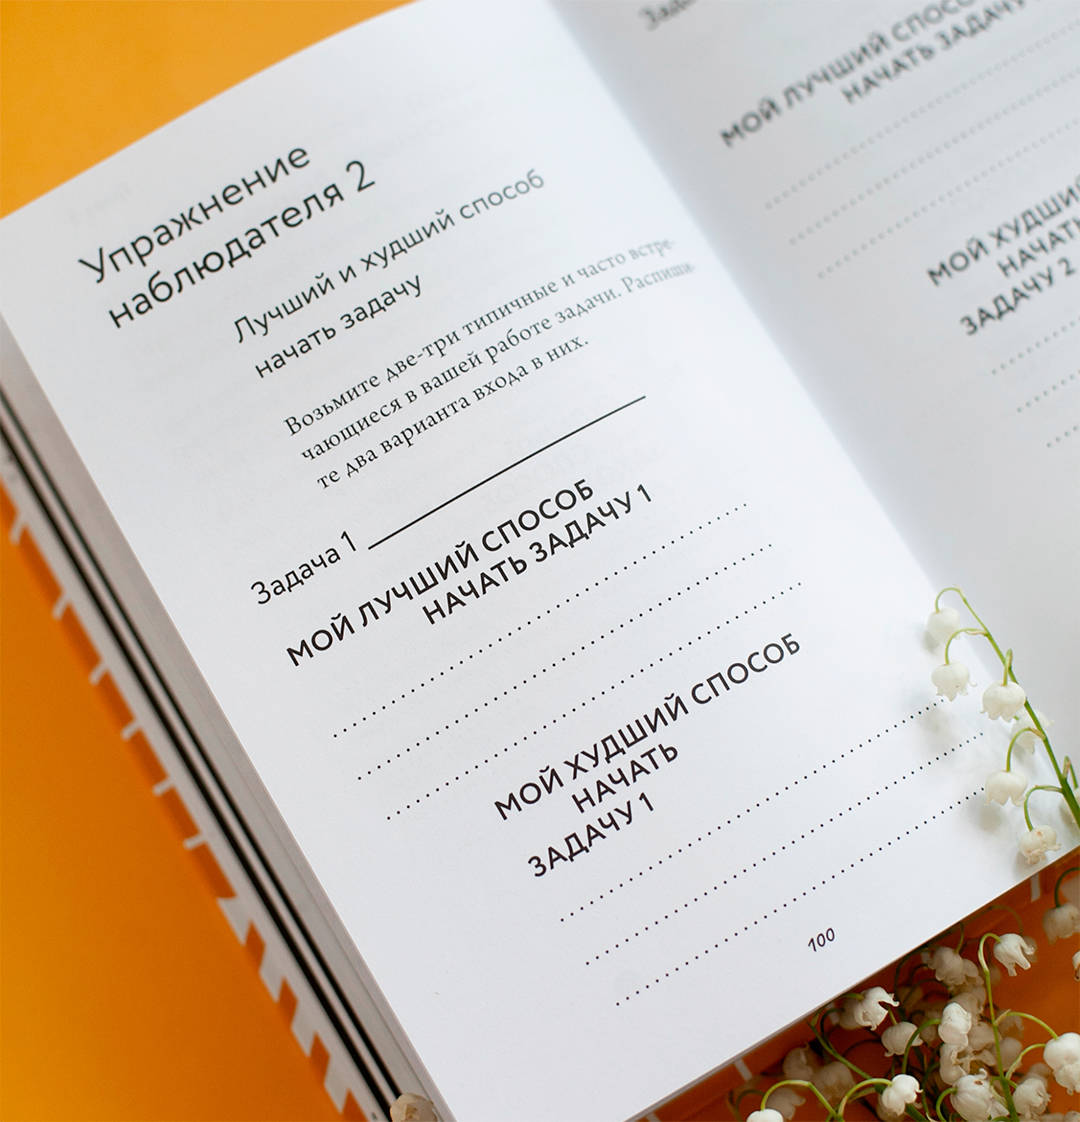 Упражнение
наблюдателя 2
Лучший и худший способ
начать задачу
Возьмите две-три типичные и часто встре-
чающиеся в вашей работе задачи. Распиши-
те два варианта входа в них.
Задача 1
МОЙ ЛУЧШИЙ СПОСОБ
НАЧАТЬ ЗАДАЧУ 1
МОЙ ХУДШИЙ СПОСОБ
НАЧАТЬ
ЗАДАЧУ 1
100
Задача
МОЙ ЛУЧШИЙ СПОСОБ
НАЧАТЬ ЗАДАЧУ
МОЙ ХУДШИЙ
НАЧАТЬ
ЗАДАЧУ 2